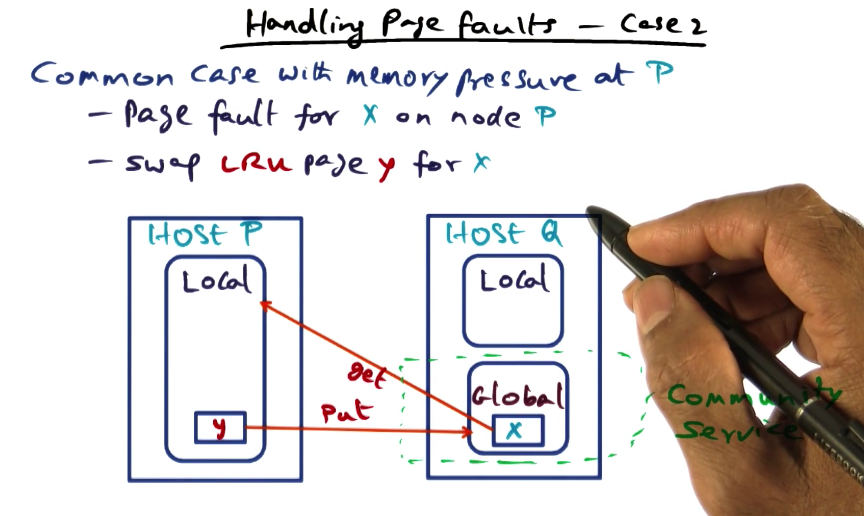 Handling Page faults – Case 2
Common case with memory pressure at P
– Page fault for X on node P
– swap LRU page y for X
HOST P
Local
y
get
Put
HOST Q
Local
Global
X
Community
Service